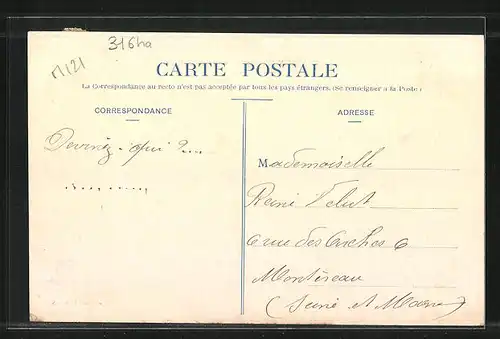 316ha
M121
CARTE POSTALE
La Correspondance au recto n'est pas acceptée par tous les pays étrangers. (Se renseigner à la Poste)
CORRESPONDANCE
ADRESSE
Devinez-qui ?...
Mademoiselle
Velut
6 rue des Arches 6
Montereau
(Seine et Marne)